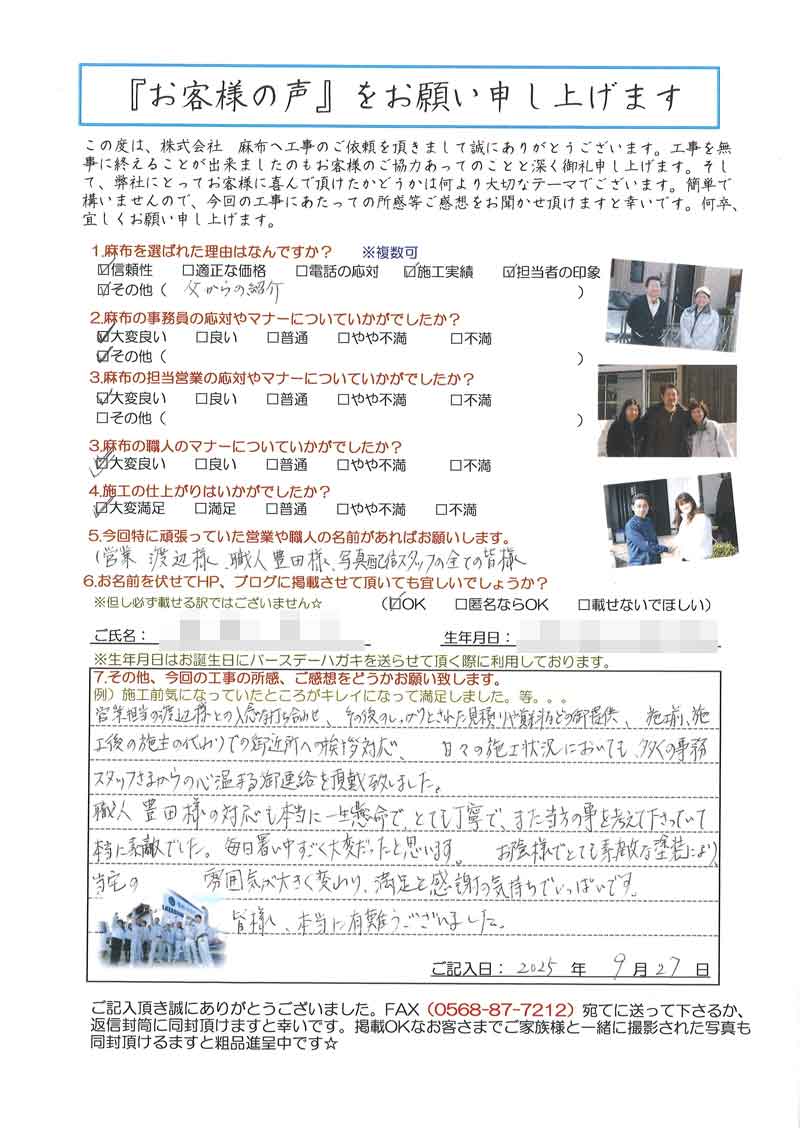 『お客様の声』をお願い申し上げます
この度は、株式会社　麻布へ工事のご依頼を頂きまして誠にありがとうございます。工事を無
事に終えることが出来ましたのもお客様のご協力あってのことと深く御礼申し上げます。そし
て、弊社にとってお客様に喜んで頂けたかどうかは何より大切なテーマでございます。簡単で
構いませんので、今回の工事にあたっての所感等ご感想をお聞かせ頂けますと幸いです。何卒、
宜しくお願い申し上げます。
1.麻布を選ばれた理由はなんですか？　※複数可
☑信頼性　□適正な価格　□電話の応対　☑施工実績　☑担当者の印象
☑その他（　父からの紹介　）
2.麻布の事務員の応対やマナーについていかがでしたか？
☑大変良い　□良い　□普通　□やや不満　□不満
☑その他（　）
3.麻布の担当営業の応対やマナーについていかがでしたか？
☑大変良い　□良い　□普通　□やや不満　□不満
□その他（　）
3.麻布の職人のマナーについていかがでしたか？
☑大変良い　□良い　□普通　□やや不満　□不満
4.施工の仕上がりはいかがでしたか？
☑大変満足　□満足　□普通　□やや不満　□不満
5.今回特に頑張っていた営業や職人の名前があればお願いします。
（営業 渡辺様、職人 豊田様、写真配信スタッフの全ての皆様
6.お名前を伏せてHP、ブログに掲載させて頂いても宜しいでしょうか？
※但し必ず載せる訳ではございません☆　（☑OK　□匿名ならOK　□載せないでほしい）
ご氏名：　生年月日：
※生年月日はお誕生日にバースデーハガキを送らせて頂く際に利用しております。
7.その他、今回の工事の所感、ご感想をどうかお願い致します。
例）施工前気になっていたところがキレイになって満足しました。等。。。
営業担当の渡辺様との入念な打ち合わせ、その後のしっかりとされた見積りや資料などの御提供、施工前、施
工後の施主の代わりでの御近所への挨拶対応、日々の施工状況においても、多くの事務
スタッフさまからの心温まる御連絡を頂戴致しました。
職人 豊田様の対応も本当に一生懸命で、とても丁寧で、また当方の事を考えて下さっていて
本当に素敵でした。毎日暑い中すごく大変だったと思います。お陰様でとても素敵な塗装により、
当宅の　雰囲気が大きく変わり、満足と感謝の気持ちでいっぱいです。
皆様へ、本当に有難うございました。
ご記入日：　2025　年　9　月　27　日
ご記入頂き誠にありがとうございました。FAX（0568-87-7212）宛てに送って下さるか、
返信封筒に同封頂けますと幸いです。掲載OKなお客さまでご家族様と一緒に撮影された写真も
同封頂けるますと粗品進呈中です☆